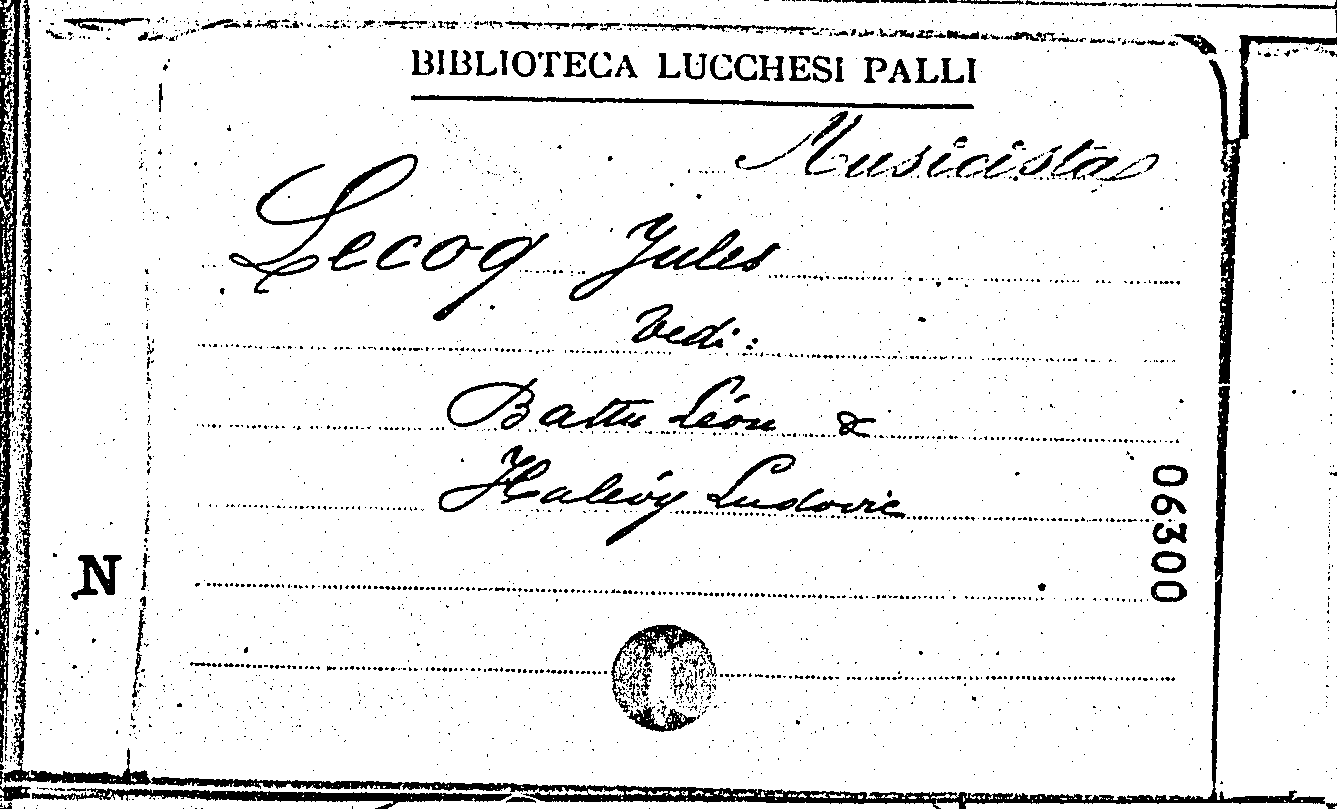 BIBLIOTECA LUCCHESI PALLI
Musicista
Lecoq Jules
Vedi:
Battu Léon &
Halévy Ludovic
06300
N